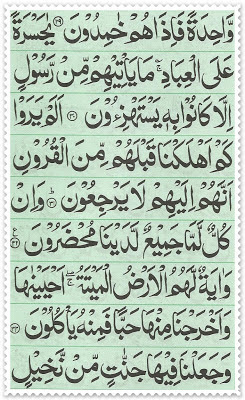 وَّاحِدَةً فَاِذَا هُمْ خٰمِدُوْنَ ﴿۲۹﴾ يٰحَسْرَةً
عَلَى الْعِبَادِ ۚ مَا يَاْتِيْهِمْ مِّنْ رَّسُوْلٍ
اِلَّا كَانُوْا بِهٖ يَسْتَهْزِءُوْنَ ﴿۳۰﴾ اَلَمْ يَرَوْا
كَمْ اَهْلَكْنَا قَبْلَهُمْ مِّنَ الْقُرُوْنِ
اَنَّهُمْ اِلَيْهِمْ لَا يَرْجِعُوْنَ ﴿۳۱﴾ وَاِنْ
كُلٌّ لَّمَّا جَمِيْعٌ لَّدَيْنَا مُحْضَرُوْنَ ﴿۳۲﴾ ع
وَاٰيَةٌ لَّهُمُ الْاَرْضُ الْمَيْتَةُ ۖۚ اَحْيَيْنٰهَا
وَاَخْرَجْنَا مِنْهَا حَبًّا فَمِنْهُ يَاْكُلُوْنَ ﴿۳۳﴾
وَجَعَلْنَا فِيْهَا جَنّٰتٍ مِّنْ نَّخِيْلٍ